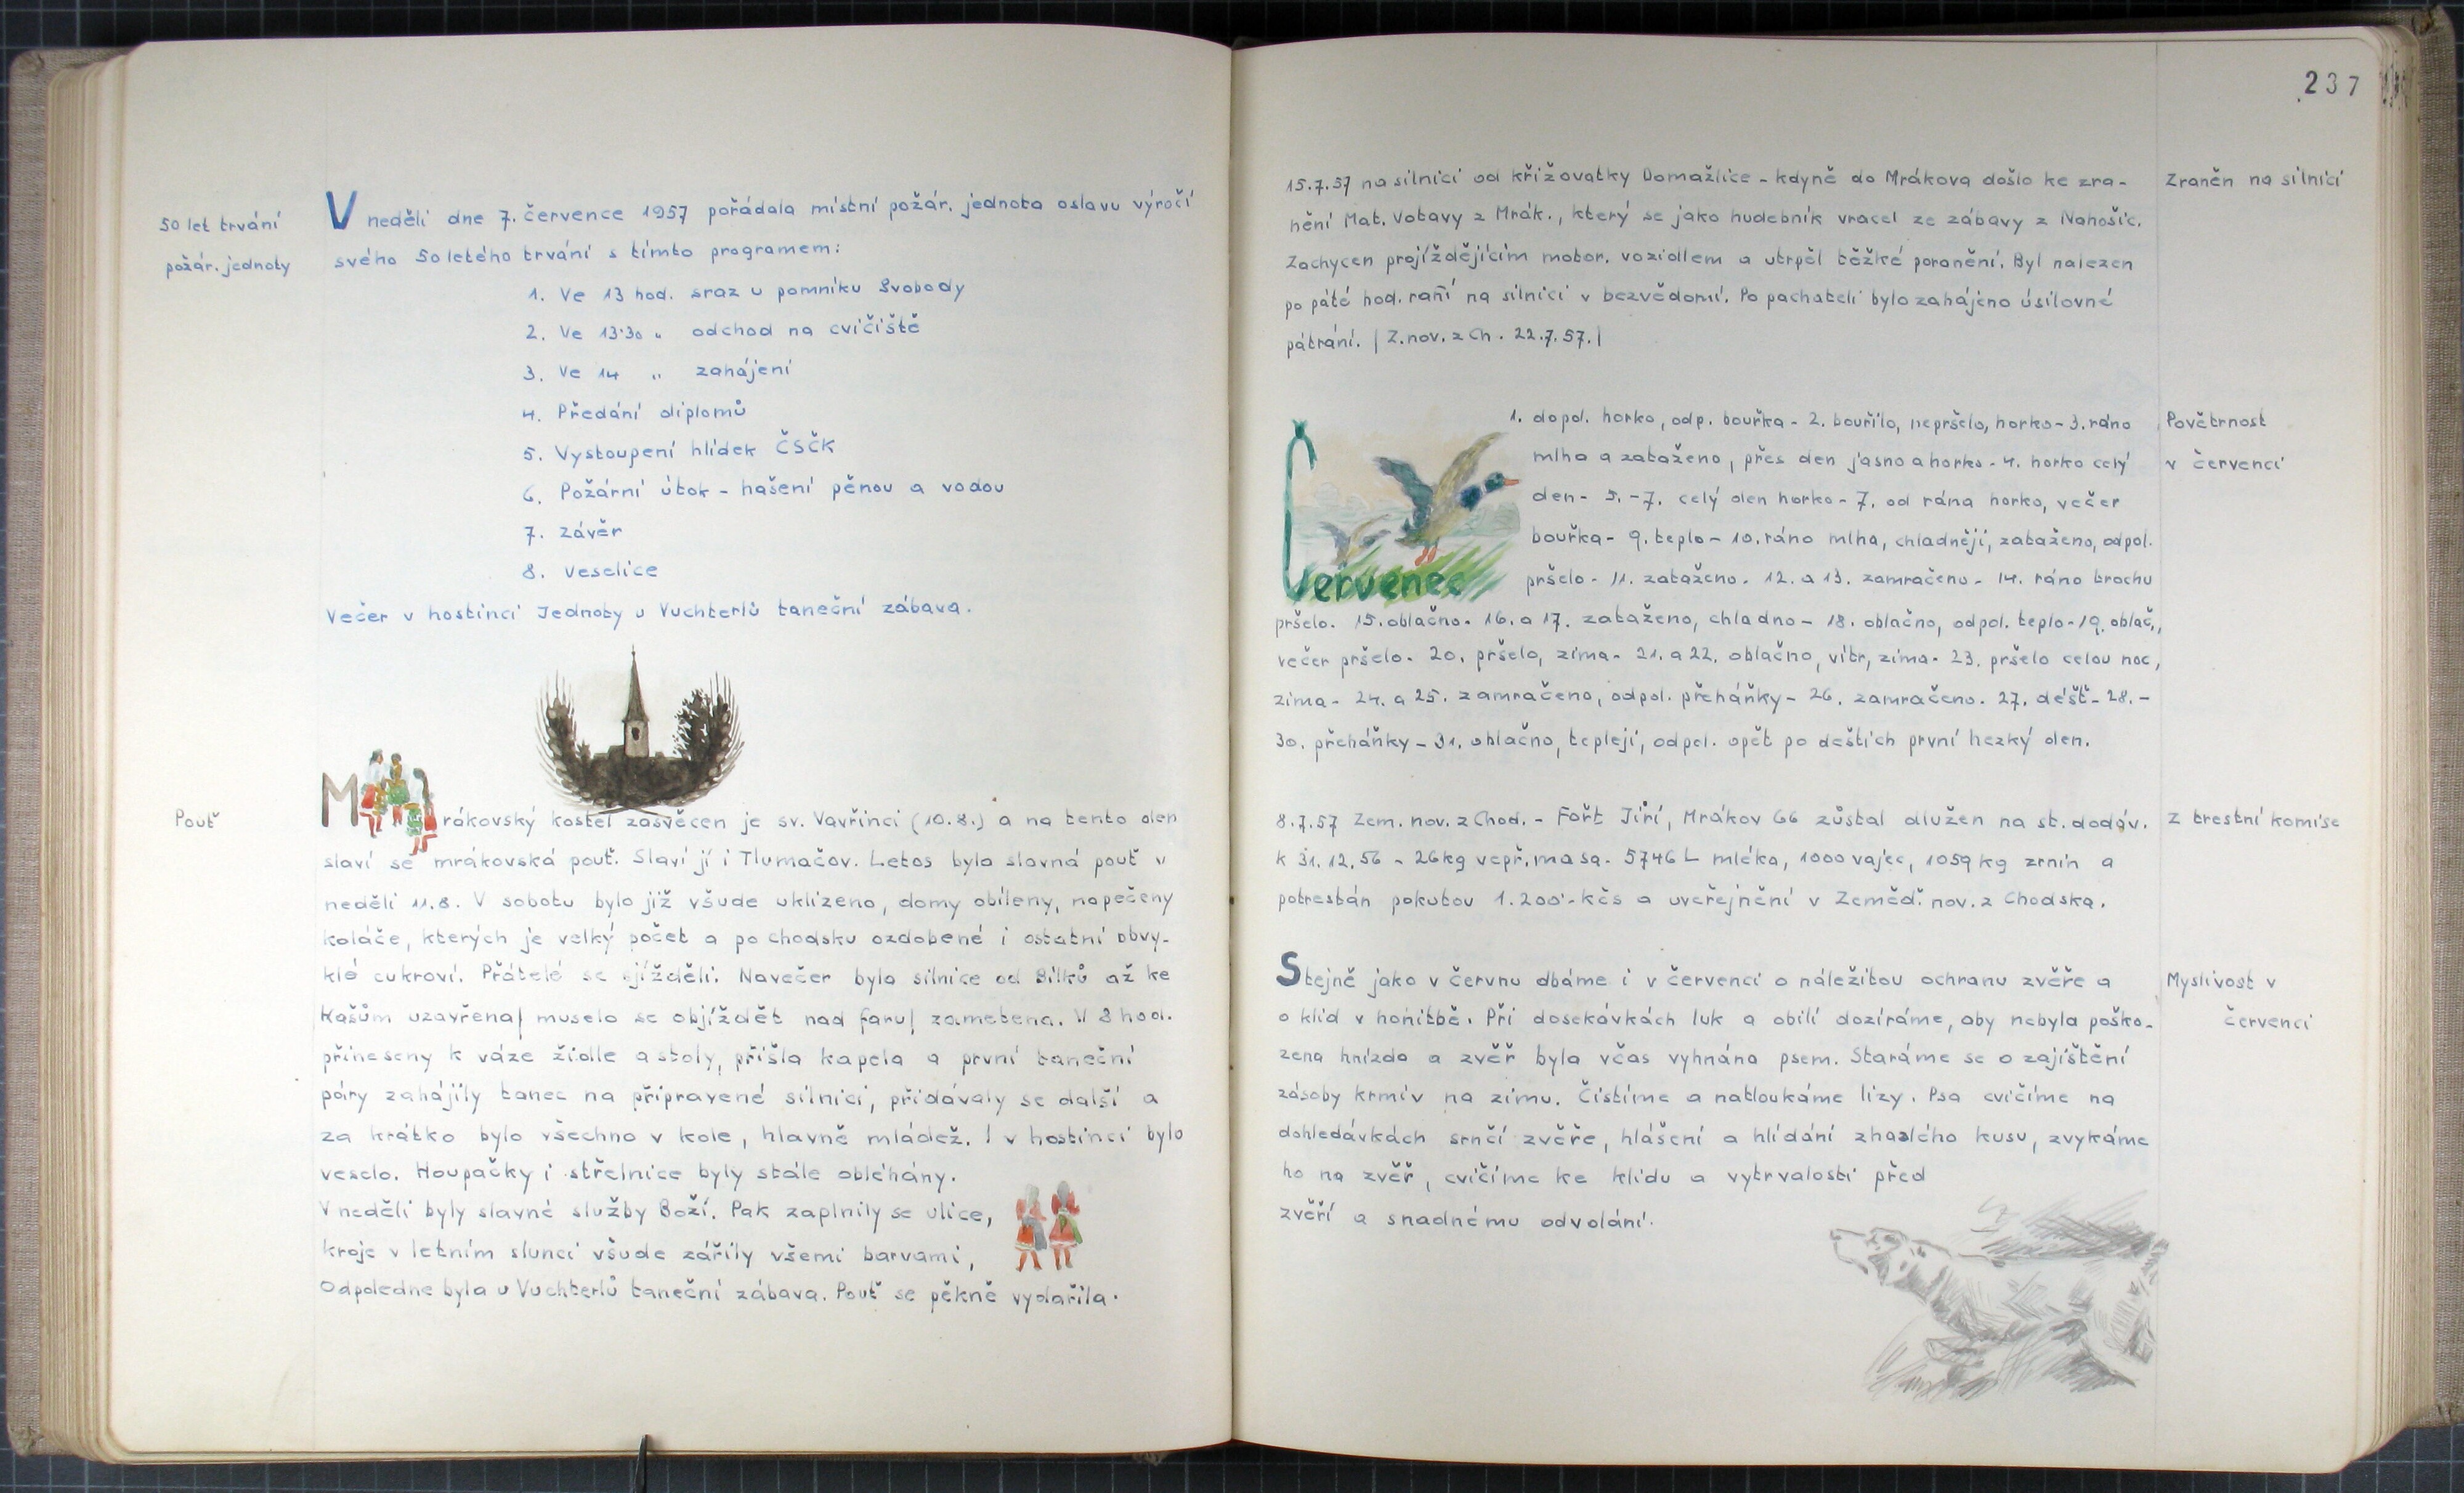 50 let trvání
požár. jednoty
V neděli dne 7. července 1957 pořádala místní požár. jednota oslavu výročí
svého 50letého trvání s tímto programem:
1. Ve 13 hod. sraz u pomníku Svobody
2. Ve 13·30 " odchod na cvičiště
3. Ve 14 " zahájení
4. Předání diplomů
5. Vystoupení hlídek ČSČK
6. Požární útok - hašení pěnou a vodou
7. závěr
8. veselice
Večer v hostinci Jednoty u Vuchterlů taneční zábava.
Pouť
Mrákovský kostel zasvěcen je sv. Vavřinci (10.8.) a na tento den
slaví se mrákovská pouť. Slaví jí i Tlumačov. Letos byla slavná pouť v
neděli 11.8. V sobotu bylo již všude uklizeno, domy obíleny, napečeny
koláče, kterých je velký počet a po chodsku ozdobené i ostatní obvy-
klé cukroví. Přátelé se sjížděli. Navečer byla silnice od Bílků až ke
Kašům uzavřena/ muselo se objíždět nad faru/ zametena. V 8 hod.
přineseny k váze židle a stoly, přišla kapela a první taneční
páry zahájily tanec na připravené silnici, přidávaly se další a
za krátko bylo všechno v kole, hlavně mládež. I v hostinci bylo
veselo. Houpačky i střelnice byly stále obléhány.
V neděli byly slavné služby Boží. Pak zaplnily se ulice,
kroje v letním slunci všude zářily všemi barvami,
Odpoledne byla u Vuchterlů taneční zábava. Pouť se pěkně vydařila.
237
15.7.57 na silnici od křižovatky Domažlice - kdyně do Mrákova došlo ke zra-
nění Mat. Votavy z Mrák., který se jako hudebník vracel ze zábavy z Nahošic.
Zachycen projíždějícím motor. vozidlem a utrpěl těžké poranění. Byl nalezen
po páté hod. raní na silnici v bezvědomí. Po pachateli bylo zahájeno úsilovné
pátrání. / Z. nov. z Ch. 22.7.57./
Zraněn na silnici
Červenec
1. dopol. horko, odp. bouřka - 2. bouřilo, nepršelo, horko - 3. ráno
mlha a zataženo, přes den jasno a horko - 4. horko celý
den - 5. - 7. celý den horko - 7. od rána horko, večer
bouřka - 9. teplo - 10. ráno mlha, chladněji, zataženo, odpol.
pršelo - 11. zataženo. 12. a 13. zamračeno - 14. ráno trochu
pršelo. 15. oblačno. 16. a 17. zataženo, chladno - 18. oblačno, odpol. teplo - 19. oblač.,
večer pršelo. 20. pršelo, zima - 21. a 22. oblačno, vítr, zima. 23. pršelo celou noc,
zima - 24. a 25. zamračeno, odpol. přeháňky - 26. zamračeno. 27. déšť - 28. -
30. přeháňky - 31. oblačno, tepleji, odpol. opět po deštích první hezký den.
Povětrnost
v červenci
8.7.57 Zem. nov. z Chod. - Fořt Jiří, Mrákov 66 zůstal dlužen na st. dodáv.
k 31.12.56 - 26kg vepř. masa. 5746 L mléka, 1000 vajec, 1059 kg zrnin a
potrestán pokutou 1.200·- kčs a uveřejnění v Zeměd. nov. z Chodska.
Z trestní komise
Stejně jako v červnu dbáme i v červenci o náležitou ochranu zvěře a
o klid v honitbě. Při dosekávkách luk a obilí dozíráme, aby nebyla poško-
zena hnízda a zvěř byla včas vyhnána psem. Staráme se o zajištění
zásoby krmiv na zimu. Čistíme a natloukáme lizy. Psa cvičíme na
dohledávkách srnčí zvěře, hlášení a hlídání zhaslého kusu, zvykáme
ho na zvěř, cvičíme ke klidu a vytrvalosti před
zvěří a snadnému odvolání.
Myslivost v
červenci